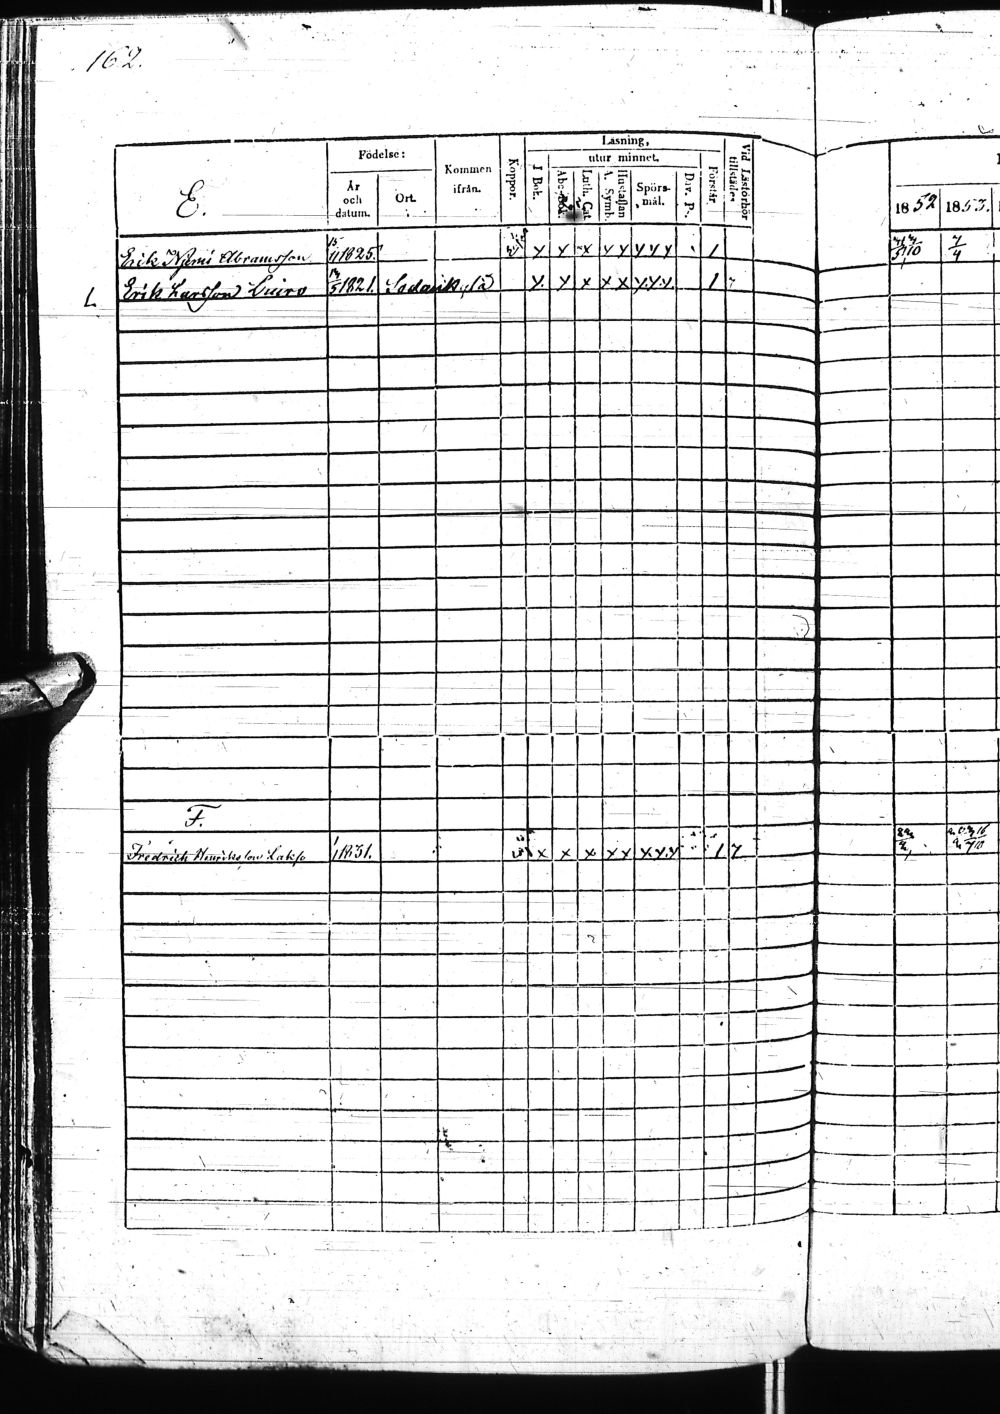 162.
E.
Födelse:
År och datum.
Ort.
Kommen ifrån.
Koppor.
Läsning,
I Bok.
utur minnet.
Abc-Bok.
Luth. Cat.
Hustaflan A. Symb.
Spörs-mål.
Dav. P.
Förstår.
Vid Läsförhör tillstädes
1852
1853.
Erik Niemi Abramsson 15/11 1825. x x x x x x x x 1 7/4
L Erik Larsson Luiro 14/5 1821. Sodankylä x x x x x x x x 1 7
F.
Fredrich Henriksson Lakso 1/1 1831. x x x x x x x x 1 7